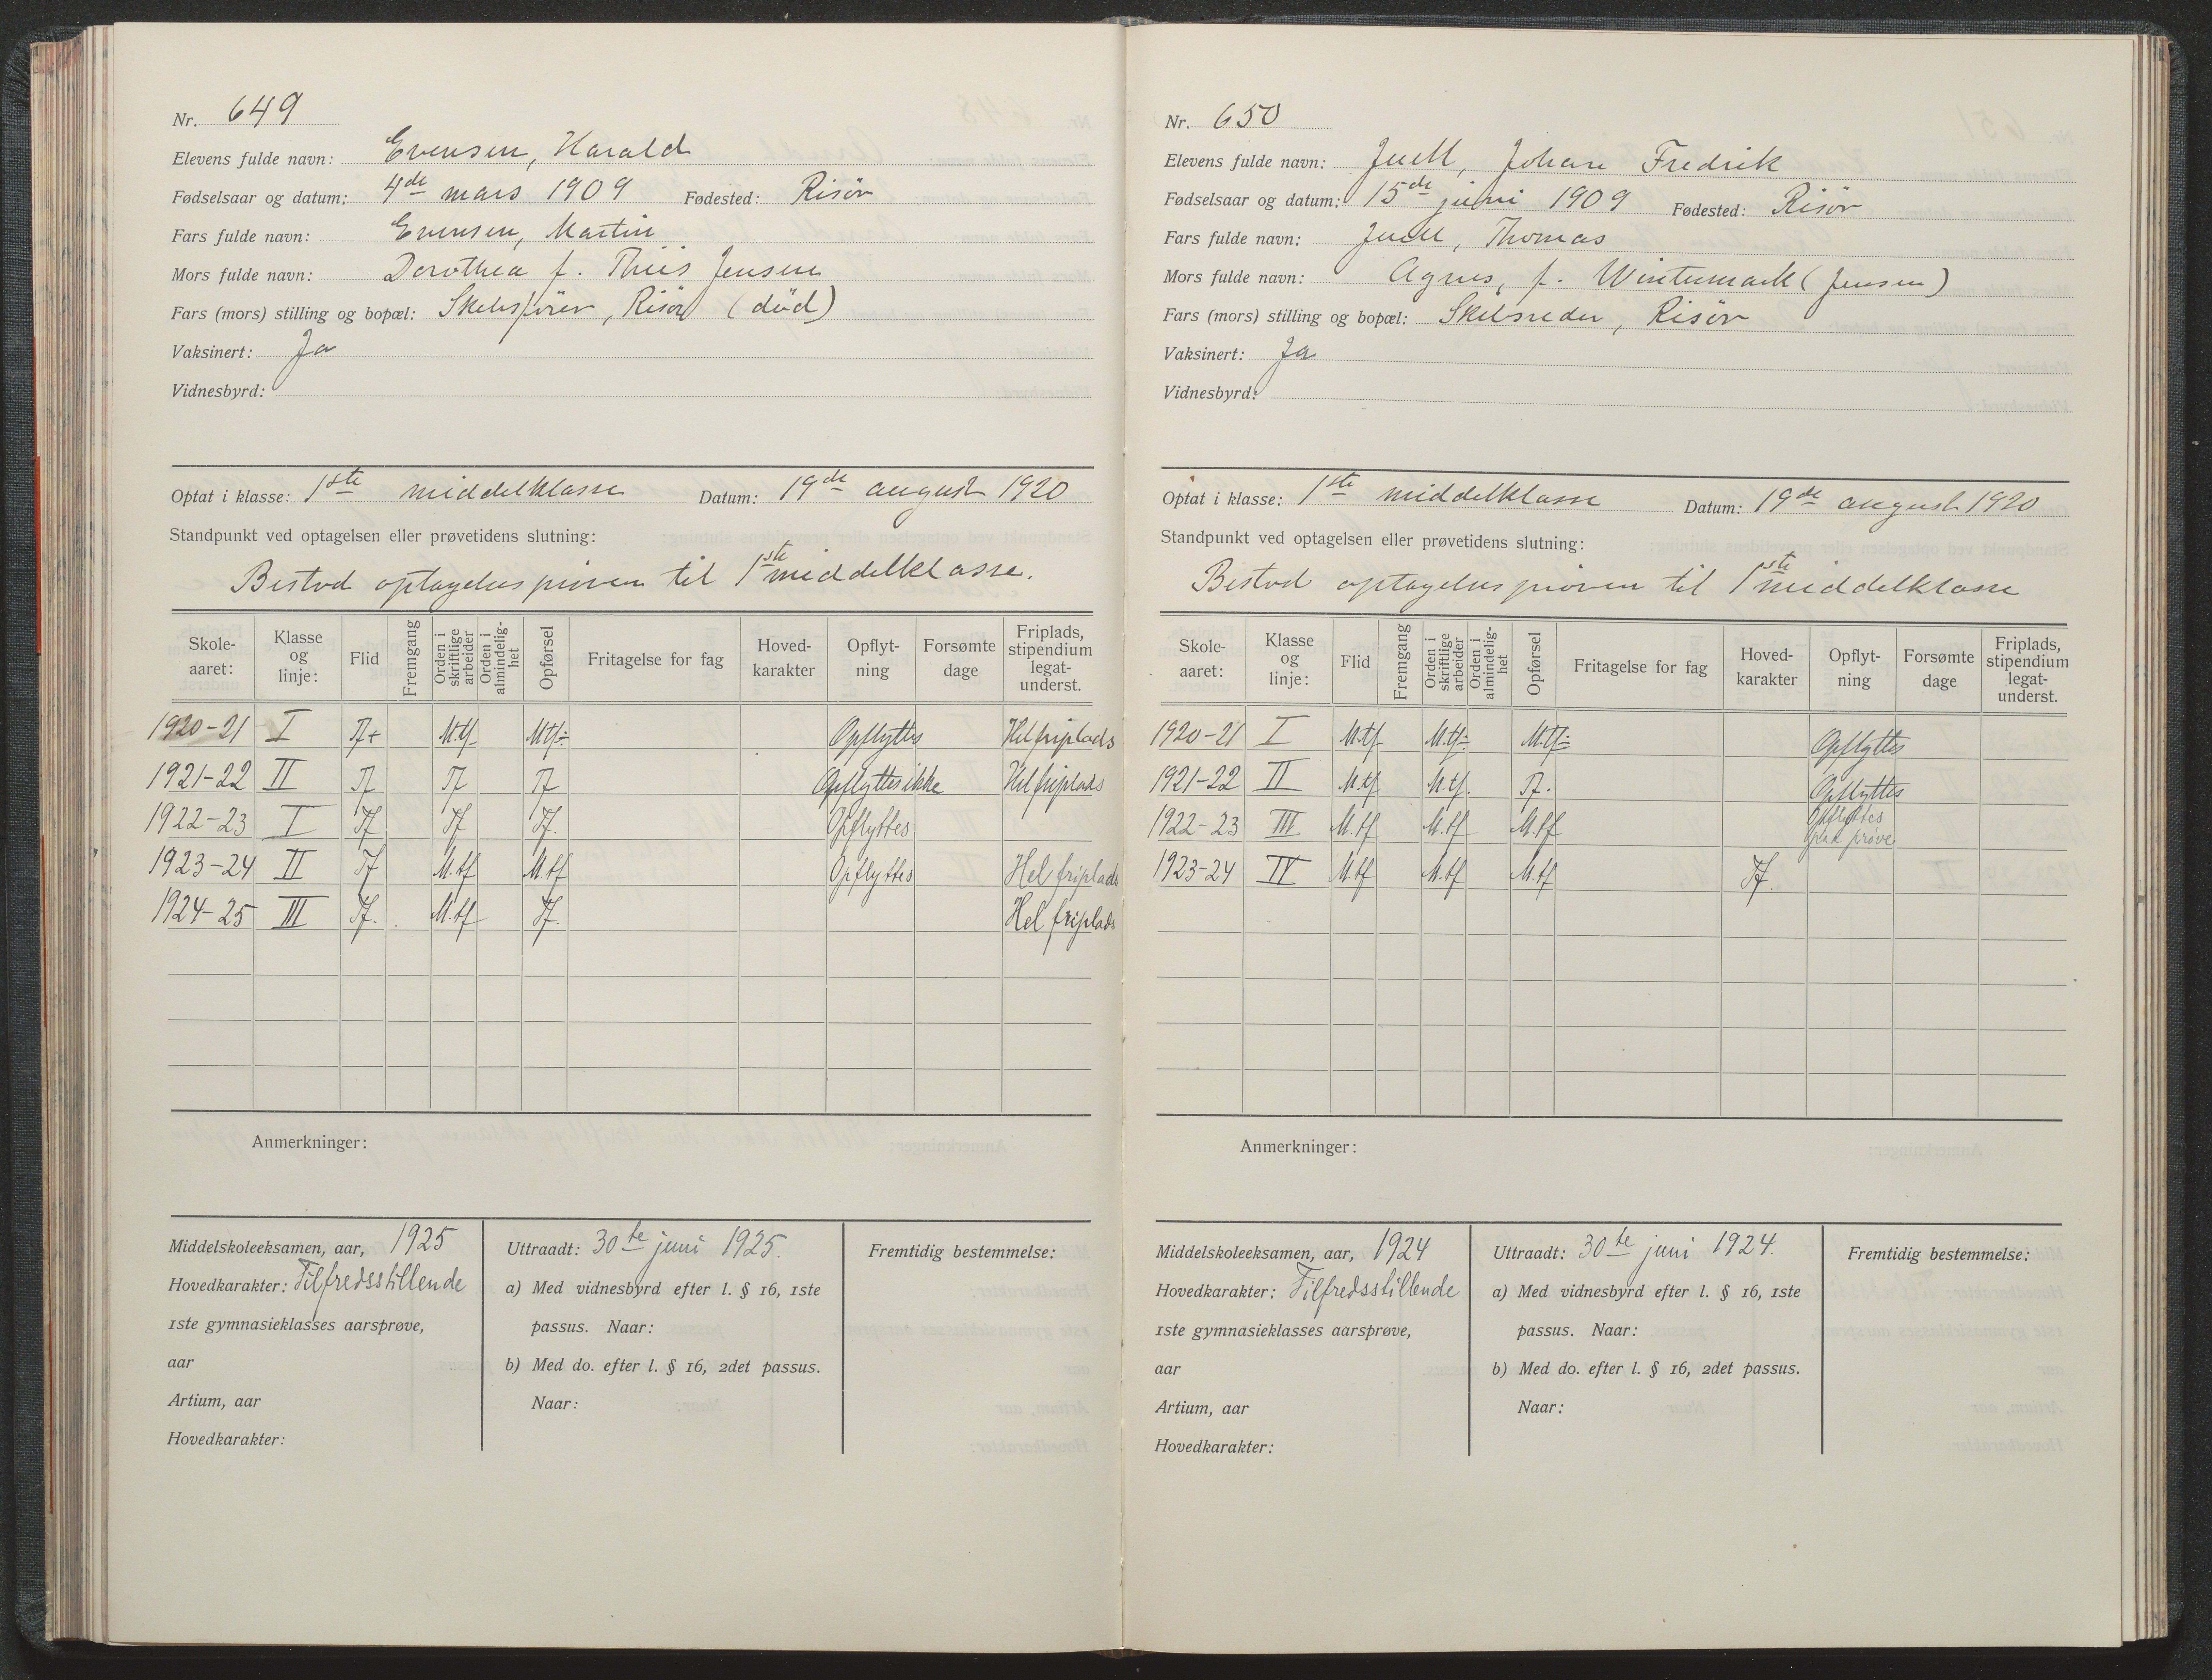 Nr. 649
Elevens fulde navn: Evensen, Harald
Fødselsaar og datum: 4de mars 1909 Fødested: Risör
Fars fulde navn: Evensen, Martin
Mors fulde navn: Dorothea f. Thiis Jensen
Fars (mors) stilling og bopæl: Skibsfører, Risör (död)
Vaksinert: Ja
Vidnesbyrd:
Optat i klasse: 1ste middelklasse Datum: 19de august 1920
Standpunkt ved optagelsen eller prøvetidens slutning:
Bestod optagelsesprøven til 1ste middelklasse.
Skole-aaret: Klasse og linje: Flid Fremgang Orden i skriftlige arbeider Orden i almindelig-het Opførsel Fritagelse for fag Hoved-karakter Opflyt-ning Forsømte dage Friplads, stipendium legat-underst.
1920-21 I Tf+ M.tf. Mtf÷ Opflyttes Hel friplads
1921-22 II Tf Tf Tf Opflyttes ikke Hel friplads
1922-23 I Tf Tf Tf. Opflyttes
1923-24 II Tf M.tf M.tf Opflyttes Hel friplads
1924-25 III Tf. M.tf Tf. Hel friplads
Anmerkninger:
Middelskoleeksamen, aar, 1925
Hovedkarakter: Tilfredsstillende
1ste gymnasieklasses aarsprøve,
aar
Artium, aar
Hovedkarakter:
Uttraadt: 30te juni 1925.
a) Med vidnesbyrd efter l. § 16, 1ste
passus. Naar:
b) Med do. efter l. § 16, 2det passus.
Naar:
Fremtidig bestemmelse:
Nr. 650
Elevens fulde navn: Juell, Johan Fredrik
Fødselsaar og datum: 15de juni 1909 Fødested: Risör
Fars fulde navn: Juell, Thomas
Mors fulde navn: Agnes, f. Wintermark (Jensen)
Fars (mors) stilling og bopæl: Skibsreder, Risör
Vaksinert: Ja
Vidnesbyrd:
Optat i klasse: 1ste middelklasse Datum: 19de august 1920
Standpunkt ved optagelsen eller prøvetidens slutning:
Bestod optagelsesprøven til 1ste middelklasse
Skole-aaret: Klasse og linje: Flid Fremgang Orden i skriftlige arbeider Orden i almindelig-het Opførsel Fritagelse for fag Hoved-karakter Opflyt-ning Forsømte dage Friplads, stipendium legat-underst.
1920-21 I M.tf M.tf÷ M.tf÷ Opflyttes
1921-22 II M.tf M.tf. Tf. Opflyttes
1922-23 III M.tf M.tf M.tf Opflyttes paa prøve
1923-24 IV M.tf M.tf M.tf Tf.
Anmerkninger:
Middelskoleeksamen, aar, 1924
Hovedkarakter: Tilfredsstillende
1ste gymnasieklasses aarsprøve,
aar
Artium, aar
Hovedkarakter:
Uttraadt: 30te juni 1924.
a) Med vidnesbyrd efter l. § 16, 1ste
passus. Naar:
b) Med do. efter l. § 16, 2det passus.
Naar:
Fremtidig bestemmelse: